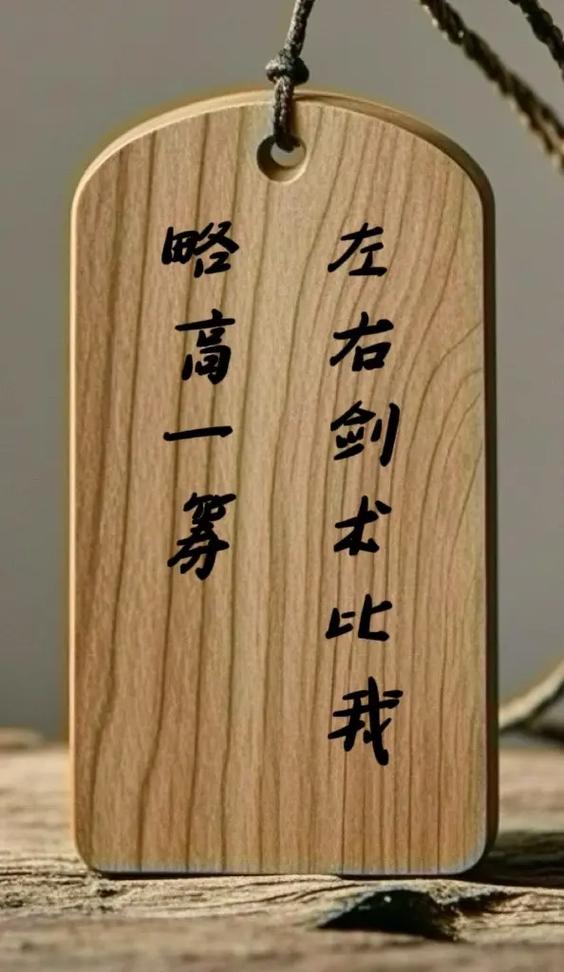 左右剑术比我
略高一筹